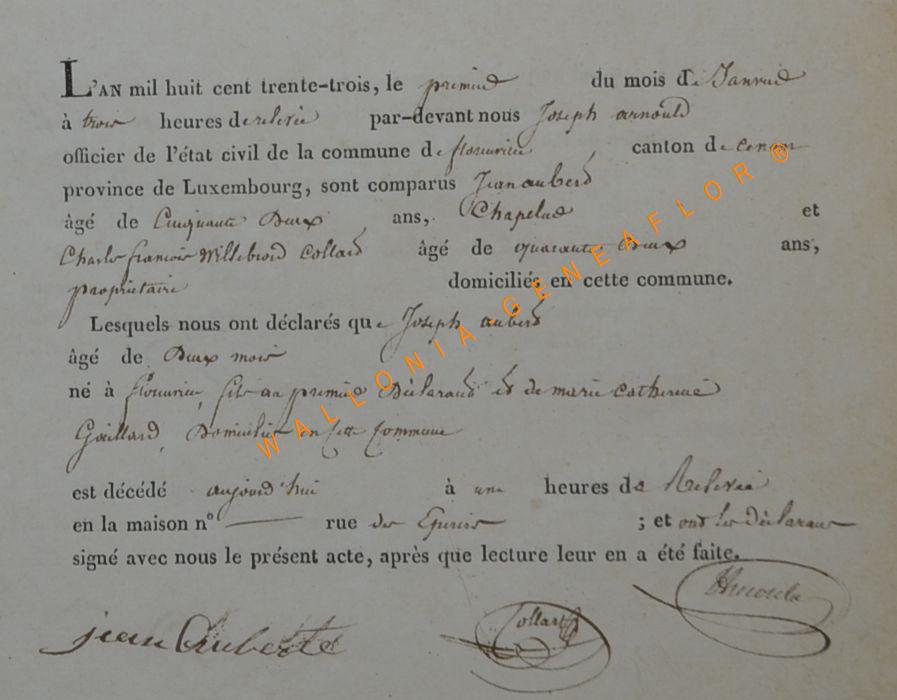 L'AN mil huit cent trente-trois, le premier du mois de Janvier
à trois heures de relevée par-devant nous Joseph arnould
officier de l'état civil de la commune de florenville, canton de
province de Luxembourg, sont comparus Jean aubert
âgé de Cinquante Deux ans, Chapelier et
Charles françois Willebrord Collard âgé de quarante Deux ans,
propriétaire domiciliés en cette commune.
Lesquels nous ont déclarés que Joseph aubert
âgé de Deux mois
né à florenville, fils au premier Déclarant et de marie catherine
Gaillard, Domiciliés en Cette Commune
est décédé aujourd'hui à une heures de Relevée
en la maison n° — rue des ; et ont les déclarans
signé avec nous le présent acte, après que lecture leur en a été faite.
jean Auberte Collard
WALLONIA GENEAFLOR ®